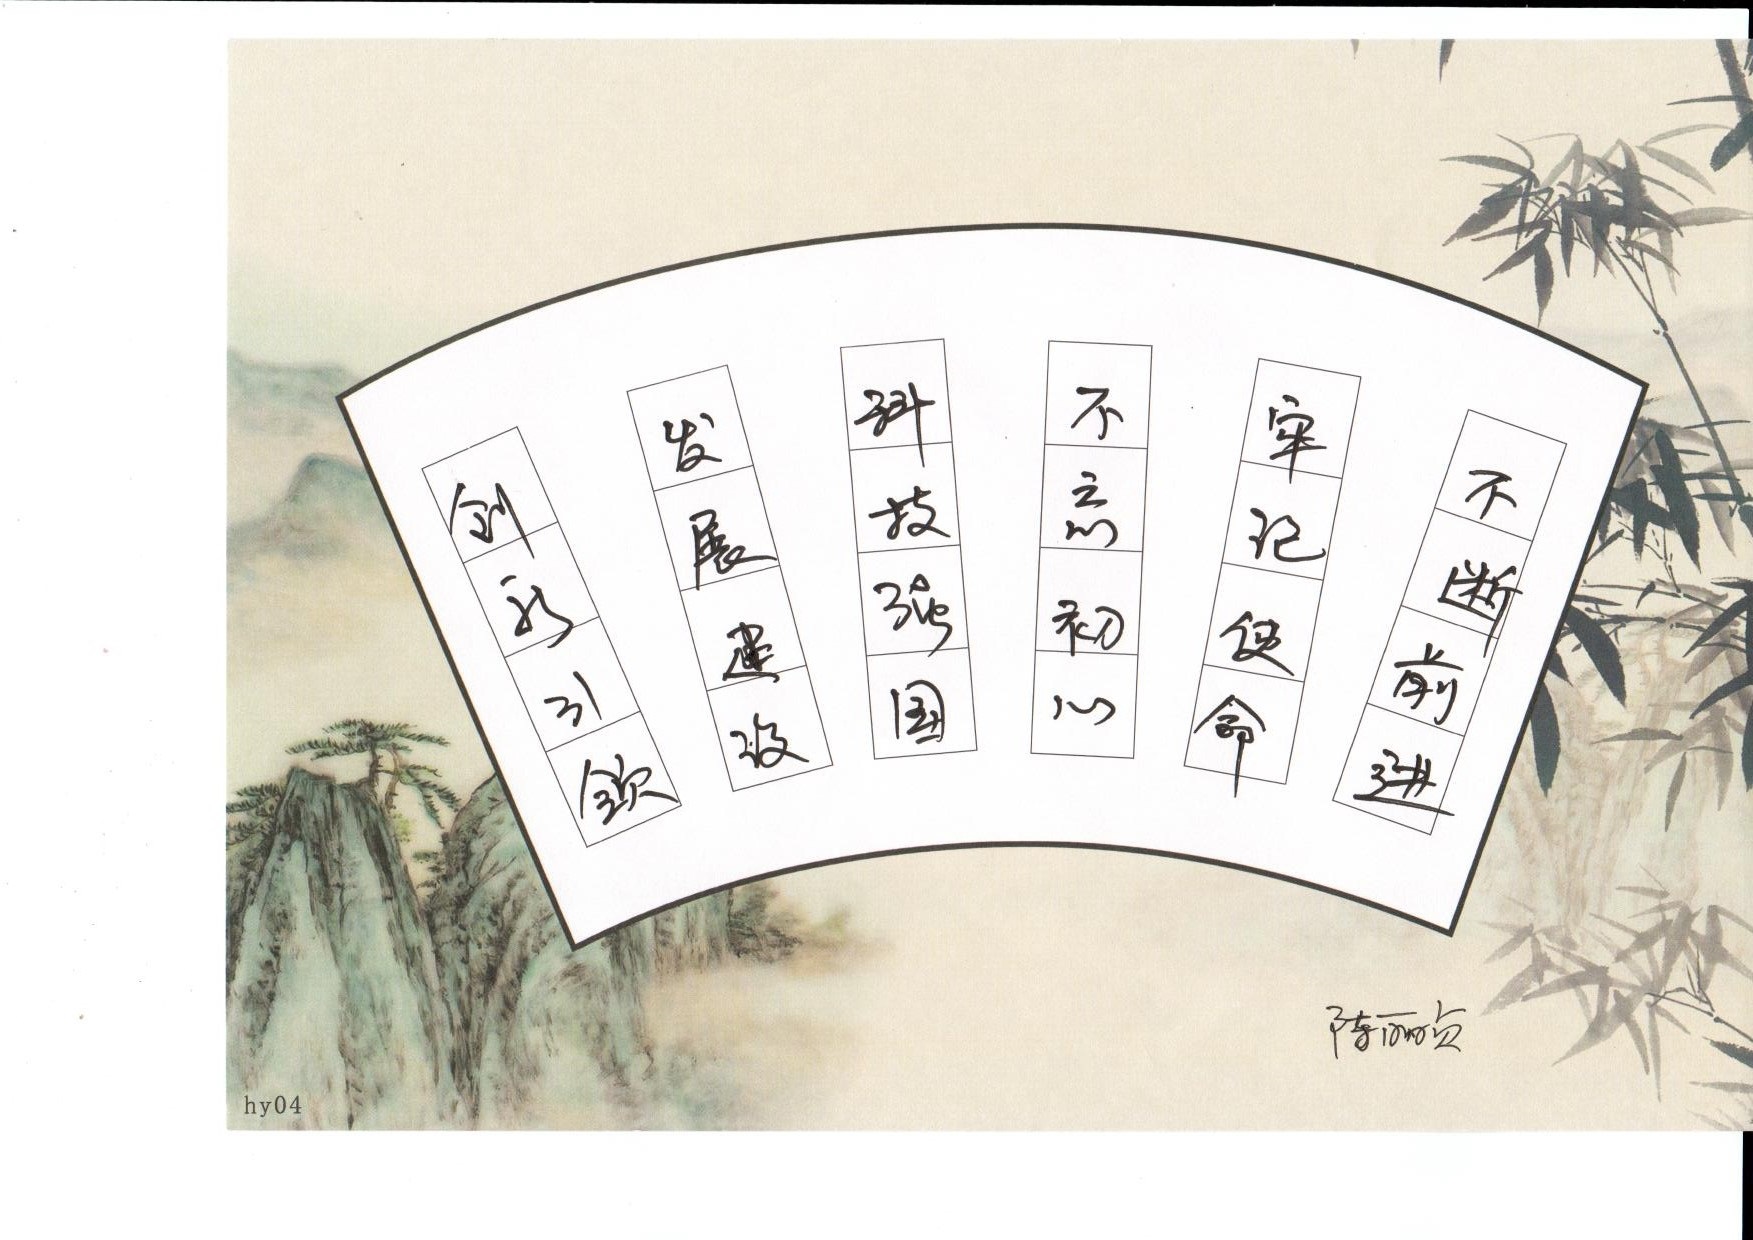 创新引领
发展建设
科技强国
不忘初心
牢记使命
不断前进
陈丽贞
hy04